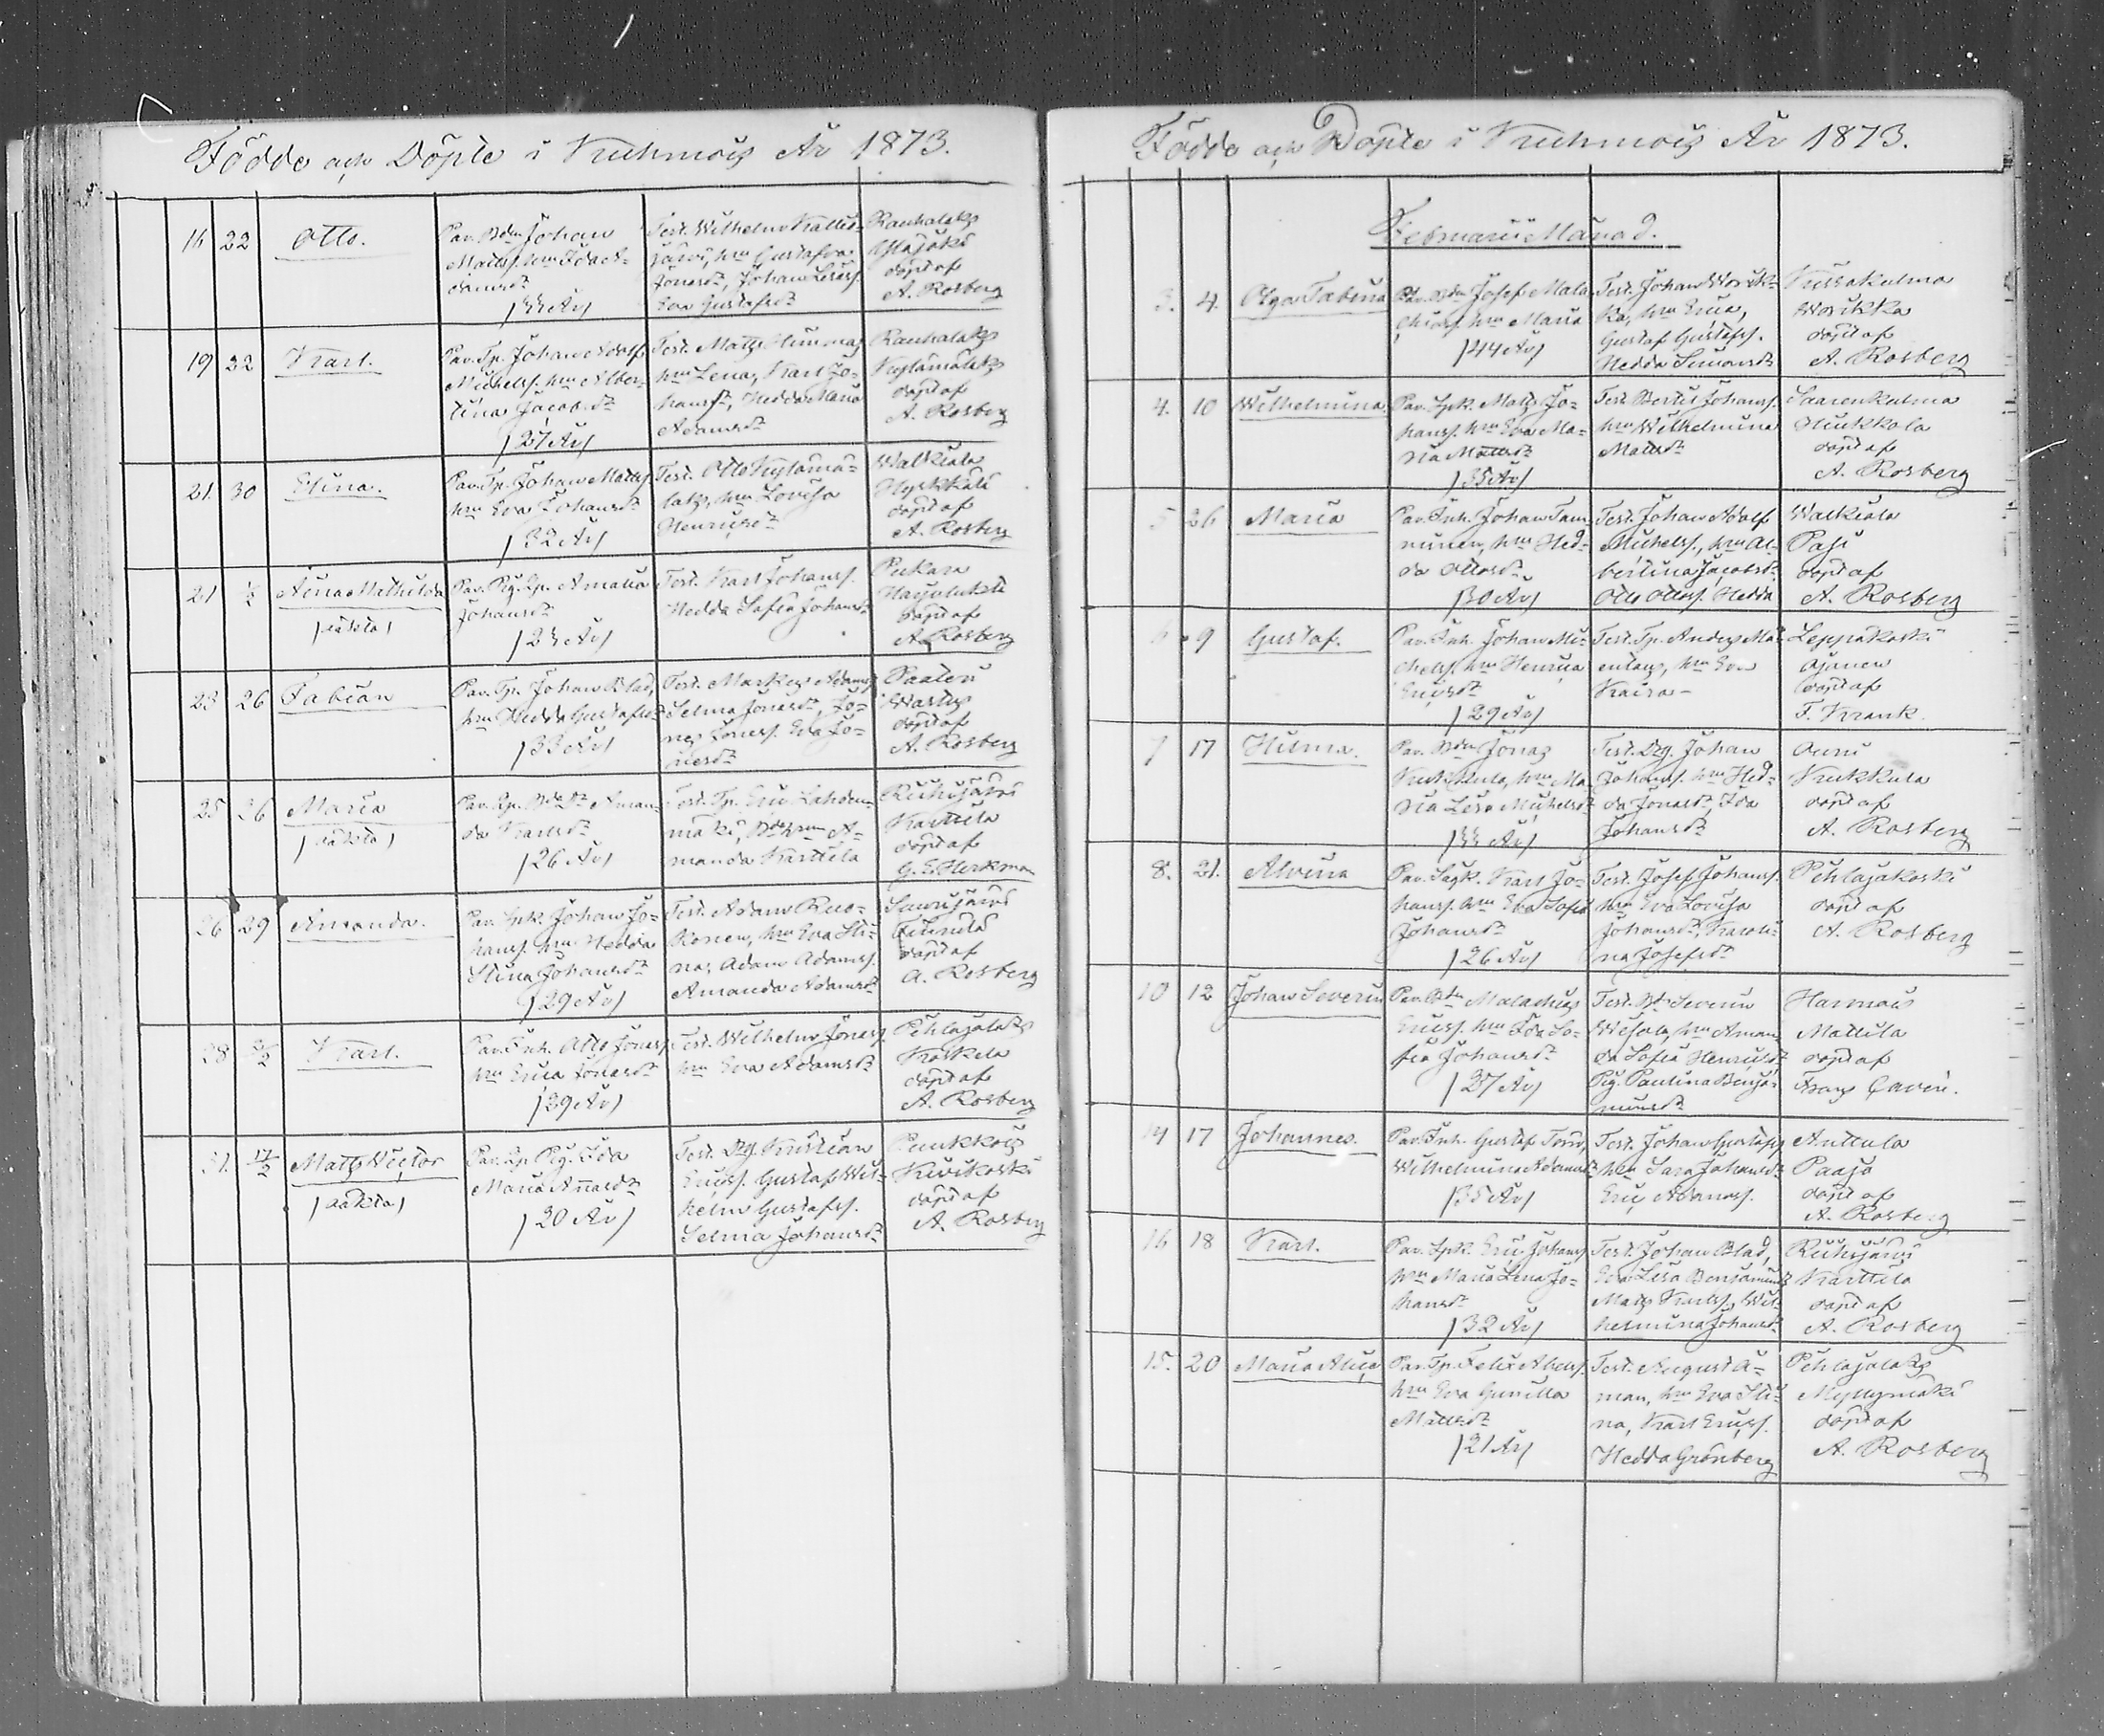 Födde och Döpte i Kuhmois År 1873.
16 22 Otto.
Par. Bdn Johan
Matss. hm Ida A-
damsdr
/33 År/
Test. Wilhelm Kallio-
järvi, hm Gustafva
Jonasdr, Johan
Eva Gustafsdr
Rauhalaks
Ylisjoki
döpt af
A. Rosberg
19 22 Karl.
Par. Tp. Johan Adolf
Michelss. hm Alber-
tina Jacobsdr
/27 År/
Test. Mats
hm Lena, Karl Jo-
hanss, Hedda Maria
Adamsdr
Rauhalaks
Kylämälaks
döpt af
A. Rosberg
21. 30 Elina.
Par. Tp. Johan Matss.
hm Eva Johansdr
/32 År/
Test. Otto Kylämä-
laks, hm Lovisa
Henricsdr
Walkiala
Hyrkkäli
döpt af
A. Rosberg
21 Aina Mathilda
/oäkta/
Par. Pig. Lp. Amalia
Johansdr
/23 År/
Test. Karl Johanss.
Hedda Sofia Johansdr
Pukara
Harjuluhta
döpt af
A. Rosberg
23 26 Fabian
Par. Tp. Johan Blad,
hm Hedda Gustafsdr
/33 År/
Test. Markus Adamss
Selma Jonasdr, Jo-
nas Jonass. Eva Jo-
nasdr
Paaleri
döpt af
A. Rosberg
25 26 Maria
/oäkta/
Par. Lp. Bdedr Aman-
da Karlsdr
/26 År/
Test. Tp. Eric Lahden-
mäki, A-
manda Karttila
Riihijärvi
Karttila
döpt af
G. E. Herkman
26 29 Amanda.
Par. Spk. Johan Jo-
hanss. hm Hedda
Stina Johansdr
/29 År/
Test. Adam Ruo-
konen, hm Eva Sti-
na, Adam Adamss.
Amanda Adamsdr
döpt af
A. Rosberg
28 Karl.
Par. Inh. Otto Jonass
hm Erica Jonasdr
/39 År/
Test. Wilhelm Jonass
hm Eva Adamsdr
Pihlajalaks
Koskela
döpt af
A. Rosberg
31. Mats Victor
/oäkta/
Par. Lp. Pig. Ida
Maria Annasdr
/30 År/
Test. Dtg. Kristian
Ericss. Gustaf Wil-
helm Gustafss.
Selma Johansdr
Puukkois
Kivikoski
döpt af
A. Rosberg
Födde och Döpte i Kuhmois År 1873.
Februarii Månad.
3. 4. Olga Fabina
Par. Bdn Josef Mala-
chiass. hm Maria
/44 År/
Test. Johan Worik-
ka, hm Erica,
Gustaf Gustafss.
Hedda Simonsdr
Kissakulma
Worikka
döpt af
A. Rosberg
4. 10 Wilhelmina
Par. Spk. Mats Jo-
hanss. hm Eva Ma-
ria Mattsdr
/35 År/
Test. Bertil Johanss.
hm Wilhelmina
Mattsdr
Saarenkulma
Hiukkola
döpt af
A. Rosberg
5 26 Maria
Par. Inh. Johan Tam-
minen, hm Hed-
da Ottosdr
/30 År/
Test. Johan Adolf
Michelss., hm Al-
bertina Jacobsdr
Otto Ottoss. Hedda
Walkiala
Pasi
döpt af
A. Rosberg
6 9 Gustaf.
Par. Inh. Johan Mi-
chelss. hm Henrica
Ericsdr
/29 År/
Test. Tp. Anders Mä-
entaus, hm Eva
Kaisa
Leppäkoski
Ojanen
döpt af
F. Krank.
7 17 Hilma.
Par. Bdn Jonas
Kukkula, hm Ma-
ria Lisa Michelsdr
/33 År/
Test. Dtg. Johan
Johanss. hm Hed-
da Jonasdr, Ida
Johansdr
Kukkula
döpt af
A. Rosberg
8. 21. Alvina
Par. Sagk. Karl Jo-
hanss. hm Eva Sofia
Johansdr
/26 År/
Test. Josef Johanss.
hm Eva Lovisa
Johansdr, Karoli-
na Josefsdr
Pihlajakoski
döpt af
A. Rosberg
10 12 Johan Severin
Par. Bdn Malachias
Ericss. hm Ida So-
fia Johansdr
/37 År/
Test. Bdn Severin
hm Aman-
da Sofia Henricsdr
Pig. Paulina Benja-
minsdr
Harmois
Mattila
döpt af
Frans Cavén.
14 17 Johannes.
Par. Inh. Gustaf
Wilhelmina Adamsdr
/35 År/
Test. Johan Gustafss
hm Sara Johansdr
Eric Adamss.
Anttula
Paaso
döpt af
A. Rosberg
16 18 Karl.
Par. Spk. Eric Johanss
hm Maria Lena Jo-
hansdr
/32 År/
Test. Johan Blad,
Eva Lisa Benjaminsdr
Mats Karlss, Wil-
helmina Johansdr
Riihijärvi
Karttila
döpt af
A. Rosberg
15. 20 Maria Alice
Par. Tp. Felix Abelss.
hm Eva Gunilla
Mattsdr
/21 År/
Test. August Å-
man, hm Eva Sti-
na, Karl Ericss.
Hedda Grönberg
Pihlajalaks
Myllymäki
döpt af
A. Rosberg